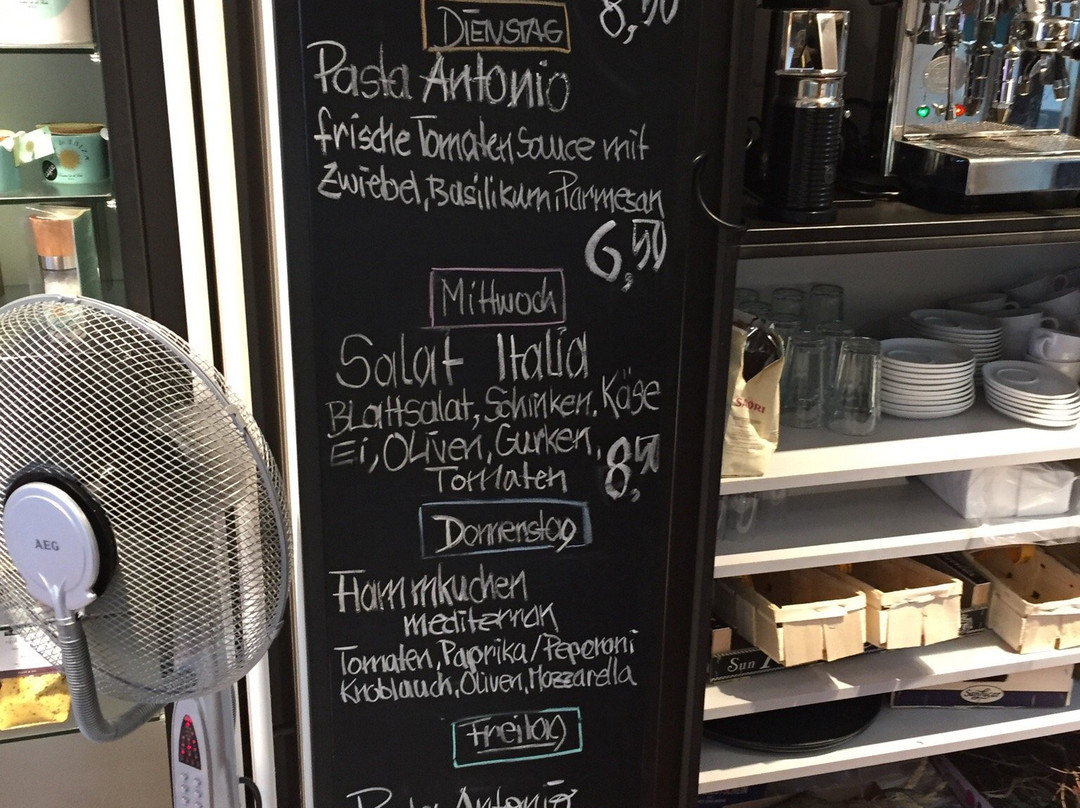 8,50
DIENSTAG
Pasta Antonio
frische Tomaten Sauce mit
Zwiebel, Basilikum, Parmesan
6,50
Mittwoch
Salat Italia
Blattsalat, Schinken, Käse
Ei, Oliven, Gurken,
Tomaten 8,50
Donnerstag
Flammkuchen
mediterran
Tomaten, Paprika/Peperoni
Knoblauch, Oliven, Mozzarella
Freitag
Pasta Antonio
AEG
Sun